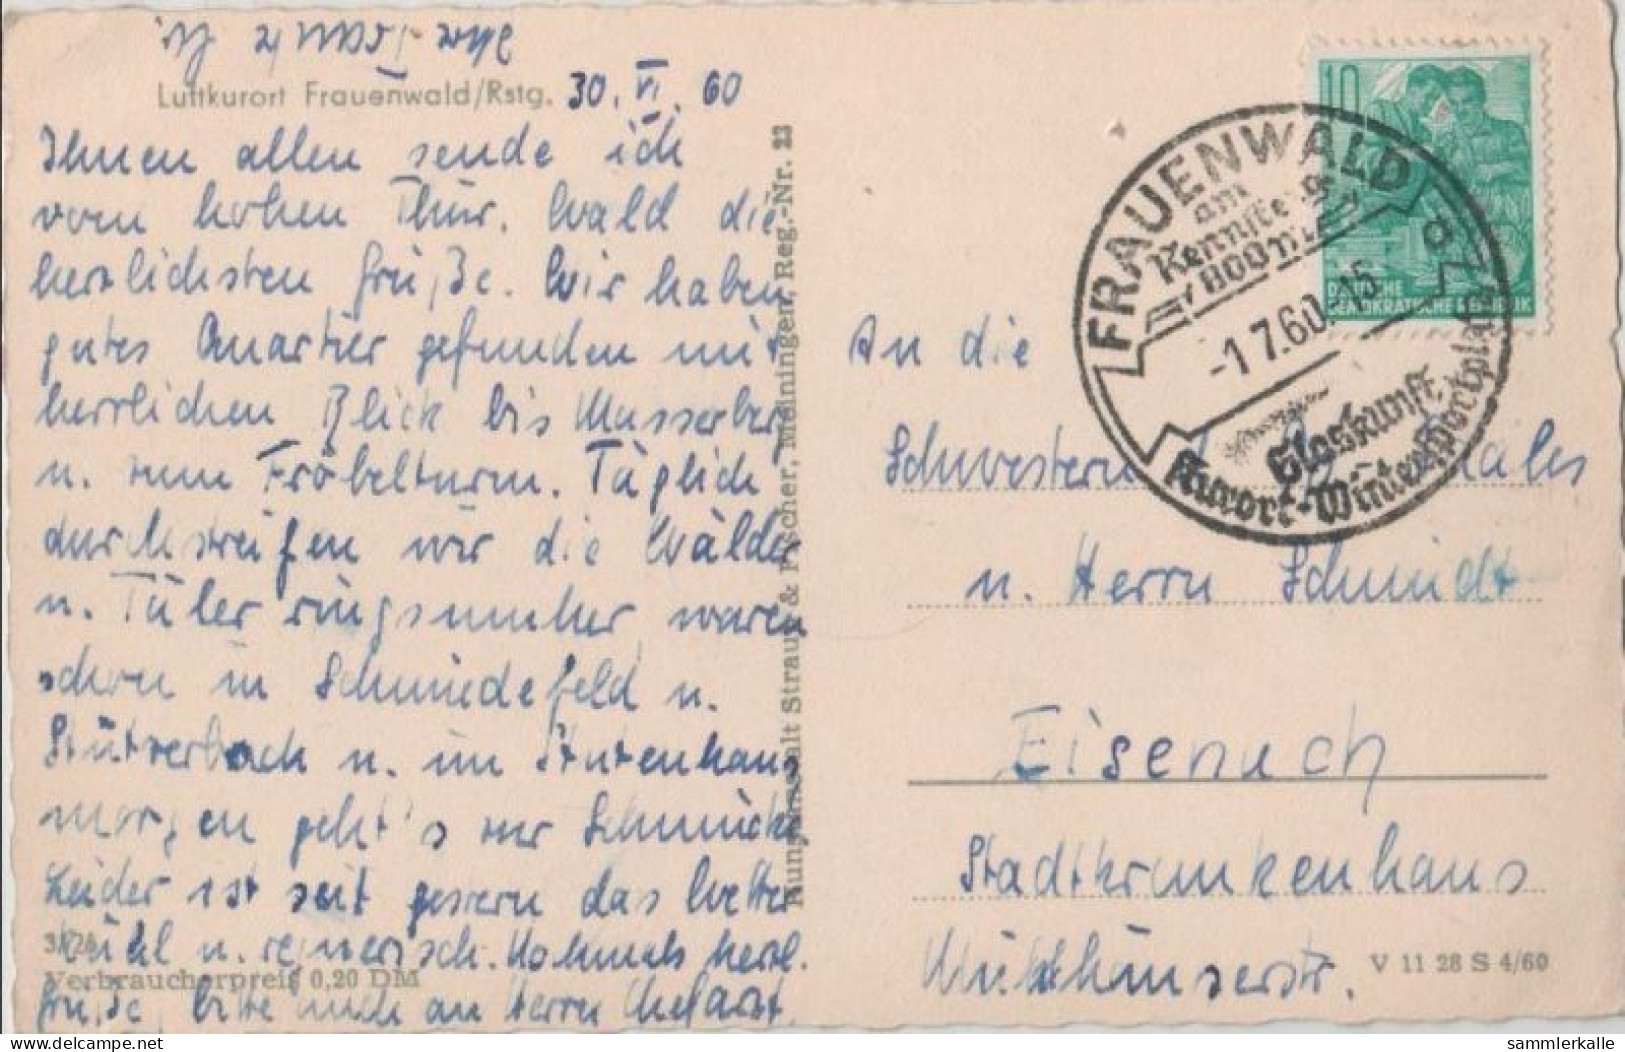 Luftkurort Frauenwald/Rstg. 30. VI. 60
Ihnen allen sende ich
vom hohen Thür. Wald die
herzlichsten Grüße. Wir haben
gutes Quartier gefunden mit
herrlichen Blick bis Masserberg
u. zum Fröbelturm. Täglich
durchstreifen wir die Wälder
u. Täler ringsumher waren
schon in Schmiedefeld u.
Stützerbach u. im Stutenhaus
morgen geht's zur Schmücke
Leider ist seit gestern das Wetter
kühl u. regnerisch. Nochmals herzl.
Grüße, bitte auch an Herrn Chefarzt.
Verbraucherpreis 0,20 DM
Kunstanstalt Straub & Fischer, Meiningen, Reg.-Nr. 23
10
DEUTSCHE
DEMOKRATISCHE REPUBLIK
FRAUENWALD
am
Rennsteig
800 m
-1.7.60.-15
Glaskunst
Kurort-Wintersportplatz
An die
Schwestern
u. Herrn Schmidt
Eisenach
Stadtkrankenhaus
Mühlhäuserstr.
V 11 28 S 4/60
delcampe.net
sammlerkalle